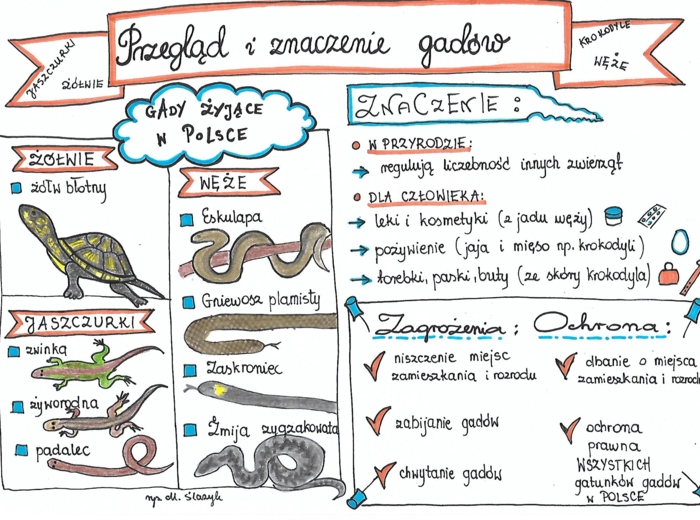 Przegląd i znaczenie gadów
JASZCZURKI
ŻÓŁWIE
KROKODYLE
WĘŻE
GADY ŻYJĄCE
W POLSCE
ŻÓŁWIE
żółw błotny
JASZCZURKI
zwinka
żyworodna
padalec
WĘŻE
Eskulapa
Gniewosz plamisty
Zaskroniec
Żmija zygzakowata
ZNACZENIE:
W PRZYRODZIE:
regulują liczebność innych zwierząt
DLA CZŁOWIEKA:
leki i kosmetyki (z jadu węży)
pożywienie (jaja i mięso np. krokodyli)
torebki, paski, buty (ze skóry krokodyla)
Zagrożenia:
niszczenie miejsc
zamieszkania i rozrodu
zabijanie gadów
chwytanie gadów
Ochrona:
dbanie o miejsca
zamieszkania i rozrodu
ochrona
prawna
WSZYSTKICH
gatunków gadów
w POLSCE